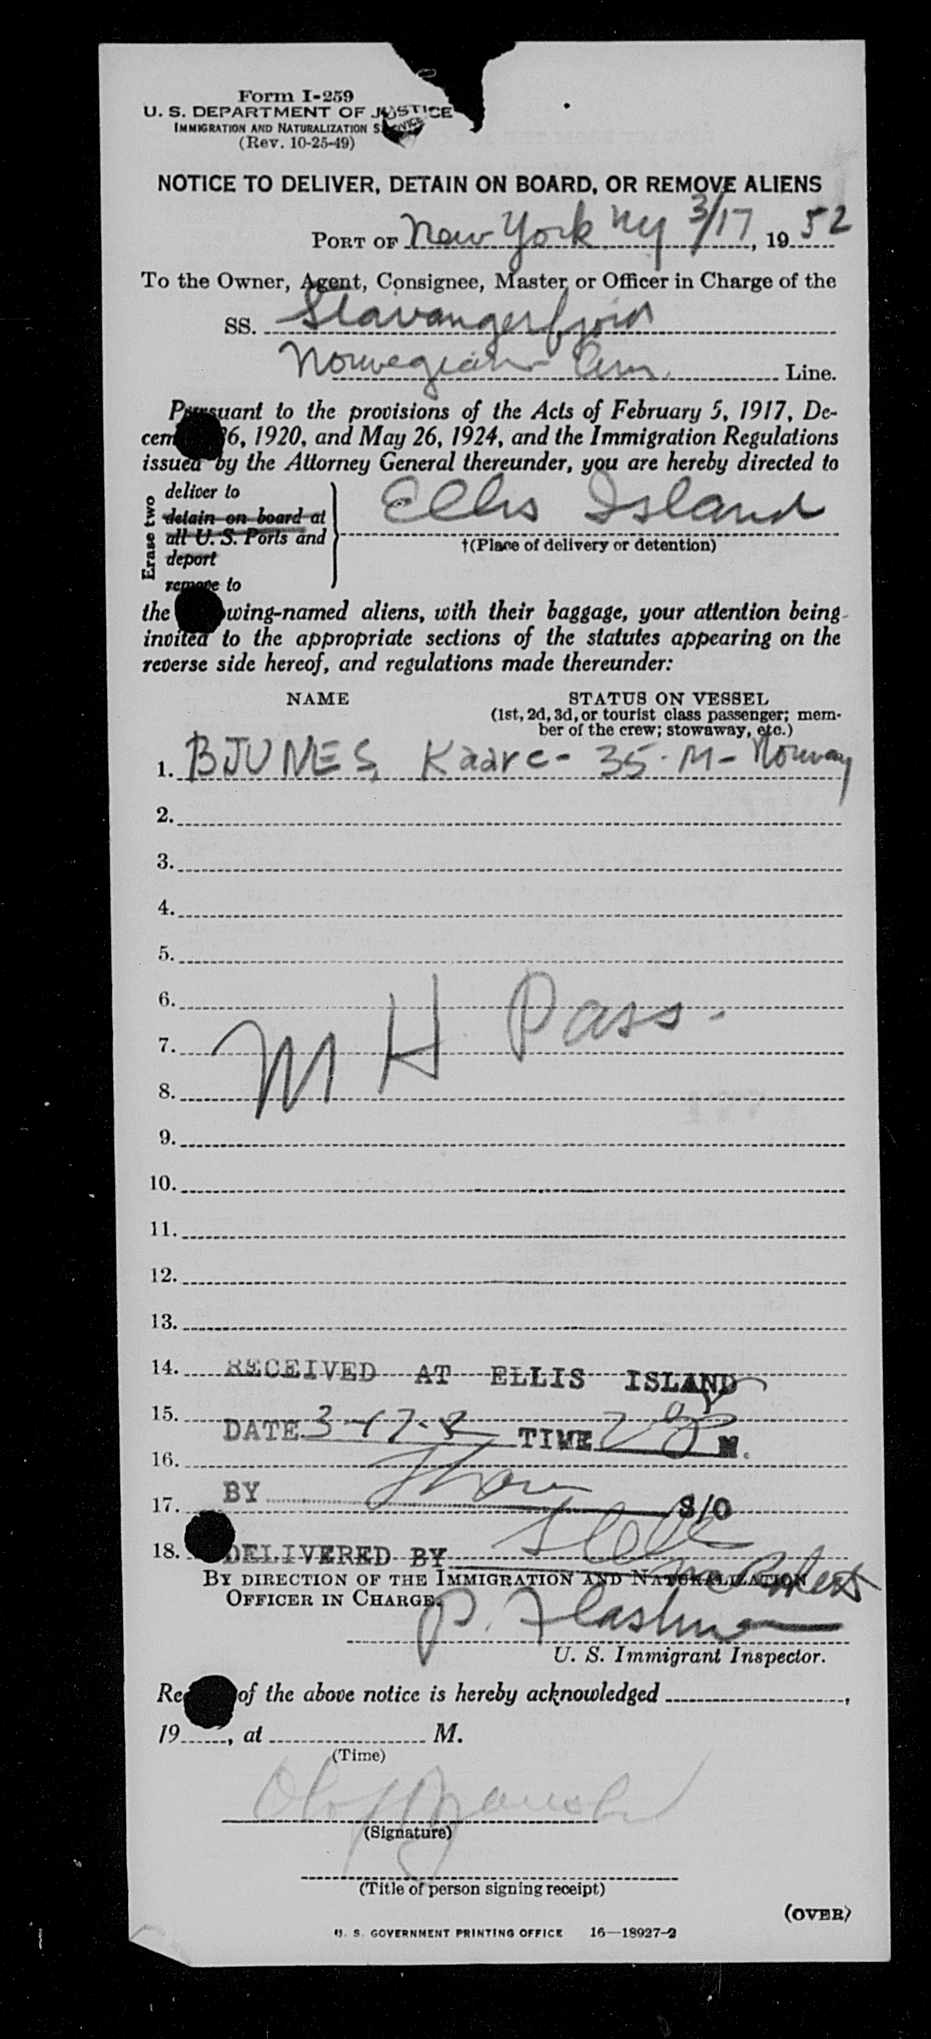 Form I-259
U. S. DEPARTMENT OF JUSTICE
IMMIGRATION AND NATURALIZATION SERVICE
(Rev. 10-25-49)
NOTICE TO DELIVER, DETAIN ON BOARD, OR REMOVE ALIENS
PORT OF New York NY 3/17, 1952
To the Owner, Agent, Consignee, Master or Officer in Charge of the
SS. Stavangerfjord
Norwegian Am. Line.
Pursuant to the provisions of the Acts of February 5, 1917, De-
cem 26, 1920, and May 26, 1924, and the Immigration Regulations
issued by the Attorney General thereunder, you are hereby directed to
Erase two
deliver to
detain on board at
all U. S. Ports and
deport
remove to
Ellis Island
†(Place of delivery or detention)
the wing-named aliens, with their baggage, your attention being
invited to the appropriate sections of the statutes appearing on the
reverse side hereof, and regulations made thereunder:
NAME STATUS ON VESSEL
(1st, 2d, 3d, or tourist class passenger; mem-
ber of the crew; stowaway, etc.)
1. BJUNES, Kaare - 35 - M - Norway
2.
3.
4.
5.
6.
M H Pass.
7.
8.
9.
10.
11.
12.
13.
14. RECEIVED AT ELLIS ISLAND
15.
DATE 3-17-2 TIME M.
16.
BY S/O
17.
18. DELIVERED BY
BY DIRECTION OF THE IMMIGRATION AND NATURALIZATION
OFFICER IN CHARGE.
P. Flashm
U. S. Immigrant Inspector.
Re of the above notice is hereby acknowledged ,
19 , at M.
(Time)
(Signature)
(Title of person signing receipt)
(OVER)
U. S. GOVERNMENT PRINTING OFFICE 16—18927-2